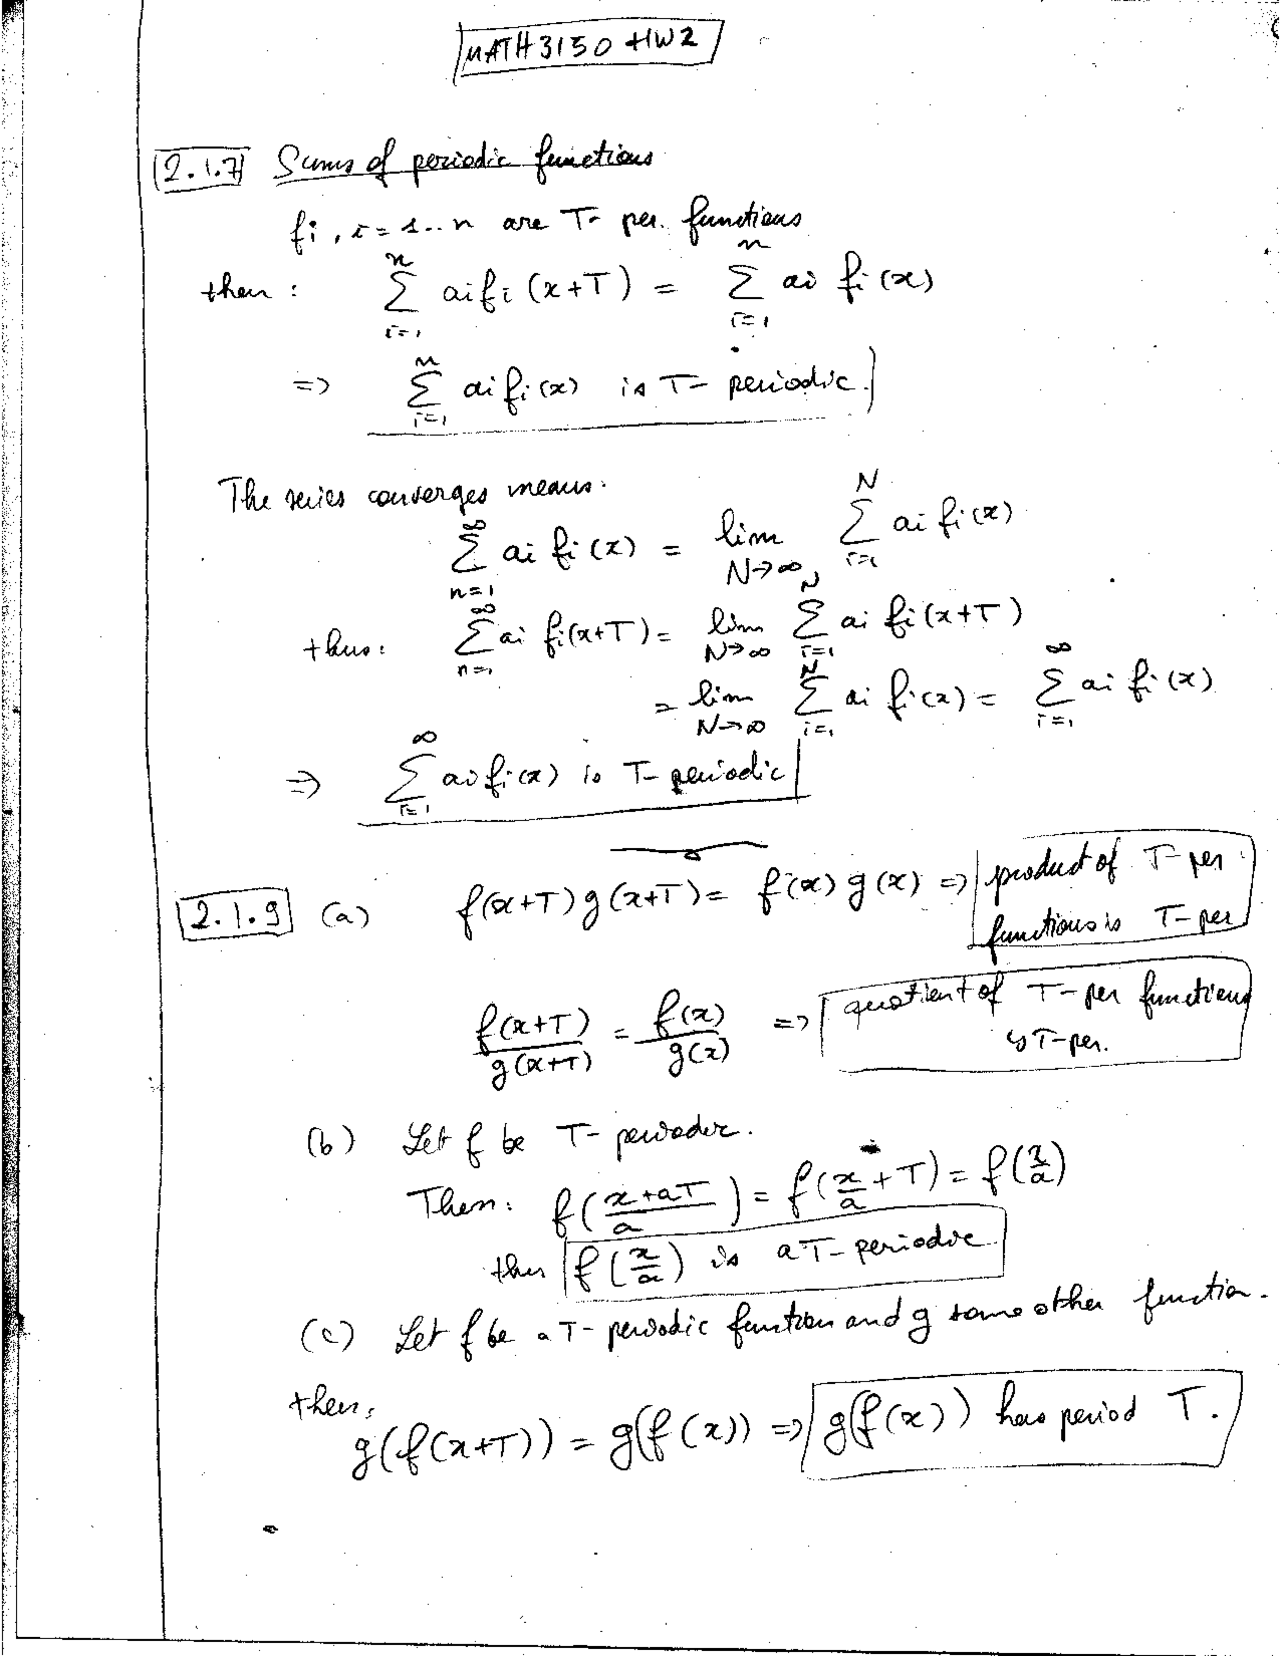 MATH 3150 HW2
2.1.7 Sums of periodic functions
fi, i = 1..n are T- per. functions
then : \sum_{i=1}^{n} ai fi (x+T) = \sum_{i=1}^{n} ai fi (x)
=> \sum_{i=1}^{n} ai fi (x) is T- periodic.
The series converges means:
\sum_{n=1}^{∞} ai fi (x) = lim_{N→∞} \sum_{i=1}^{N} ai fi (x)
thus: \sum_{n=1}^{∞} ai fi (x+T) = lim_{N→∞} \sum_{i=1}^{N} ai fi (x+T)
= lim_{N→∞} \sum_{i=1}^{N} ai fi (x) = \sum_{i=1}^{∞} ai fi (x)
=> \sum_{i=1}^{∞} ai fi (x) is T- periodic
2.1.9 (a) f(x+T) g(x+T) = f(x) g(x) => product of T- per
functions is T- per
\frac{f(x+T)}{g(x+T)} = \frac{f(x)}{g(x)} => quotient of T- per functions
is T-per.
(b) Let f be T- periodic.
Then: f(\frac{x+aT}{a}) = f(\frac{x}{a} + T) = f(\frac{x}{a})
thus f(\frac{x}{a}) is aT- periodic.
(c) Let f be a T- periodic function and g some other function.
then:
g(f(x+T)) = g(f(x)) => g(f(x)) has period T.